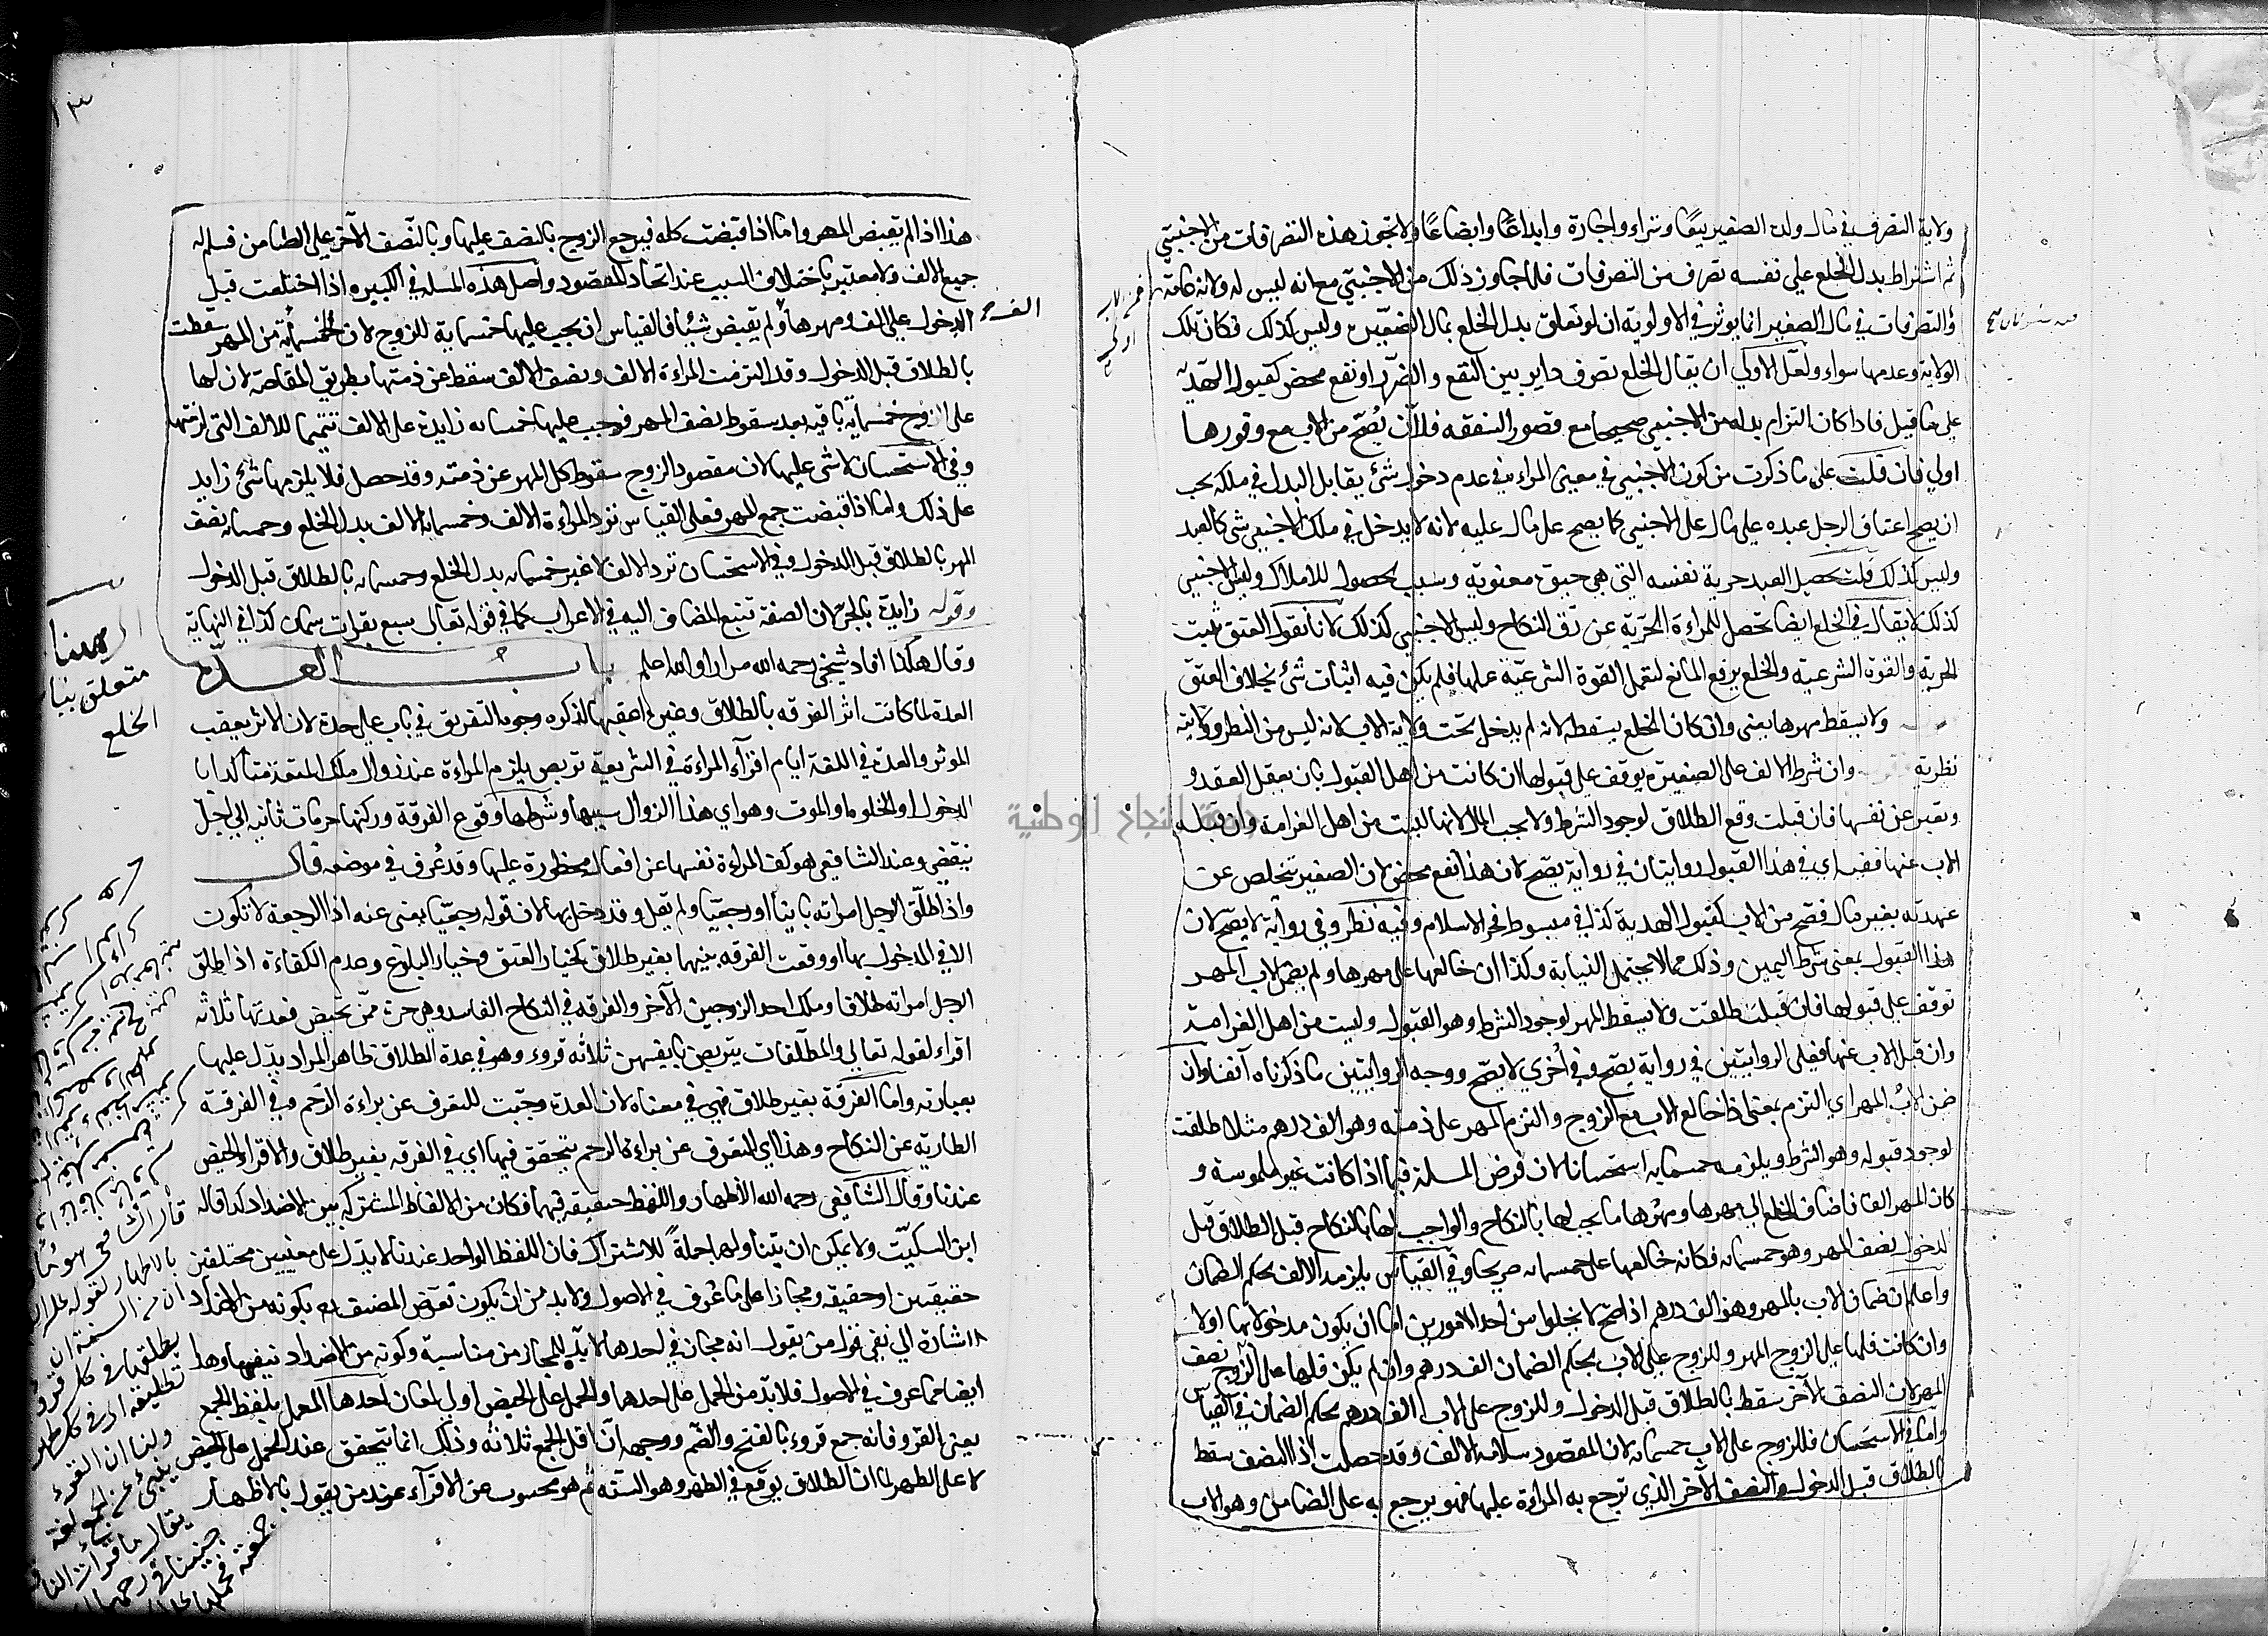 ولاية التصرف في مال ولده الصغير بيعًا وشراء واجارة وايداعًا وابضاعًا ولا تجوز هذه التصرفات من الاجنبي
ثم اشتراط بدل الخلع على نفسه تصرف من التصرفات فلما جاوز ذلك من الاجنبي مع انه ليس له ولاية
والتصرفات في مال الصغير انما يوثر في الاولوية ان لو تعلق بدل الخلع بمال الصغير وليس كذلك فكان تلك
الولاية وعدمها سواء ولعل الاولى ان يقال الخلع تصرف داير بين النفع والضرر او نفع محض كقبول الهدية
على ما قيل فاذا كان التزام بدله من الاجنبي صحيحا مع قصور الشفقه فلان يصح من الاب مع وفورها
اولى فان قلت على ما ذكرت من كون الاجنبي في معنى المراة في عدم دخول شئ يقابل البدل في ملكه يجب
ان يصح اعتاق الرجل عبده على مال على الاجنبي كما يصح على مال عليه لانه لا يدخل في ملك الاجنبي شى كالعبد
وليس كذلك قلت تحصل للعبد حرية نفسه التي هي حيوة معنوية وسبب لحصول للاملاك وليس الاجنبي
كذلك لا يقال في الخلع ايضا تحصل للمراءة الحرية عن رق النكاح وليس الاجنبي كذلك لانا نقول العتق يثبت
الحرية والقوة الشرعية والخلع يرفع المانع لتعمل القوة الشرعية عملها فلم يكن فيه اثبات شئ بخلاف العتق
ولا يسقط مهرها يعنى وان كان الخلع يسقطه لانه لم يدخل تحت ولاية الاب لانه ليس من النظر وولايته
نظرية وان شرط الالف على الصغيرة يوقف على قبولها ان كانت من اهل القبول بان يعقل العقد و
وتعبر عن نفسها فان قبلت وقع الطلاق لوجود الشرط ولا يجب المال لانها ليست من اهل الغرامة وان قبله
الاب عنها ففيه اي في هذا القبول روايتان في رواية يصح لان هذا نفع محض لان الصغير تتخلص عن
عهدته بغير مال فصح من الاب كقبول الهدية كذا في مبسوط فخر الاسلام وفيه نظر وفى رواية لا يصح لان
هذا القبول بمعنى شرط اليمين وذلك مما لا يحتمل النيابة وكذا ان خالعها على مهرها ولم يضمن الاب المهر
توقف على قبولها فان قبلت طلقت ولا يسقط المهر لوجود الشرط وهو القبول وليست من اهل الغرامة
وان قبل الاب عنها فعلى الروايتين في رواية يصح وفي اخرى لا يصح ووجه الروايتين ما ذكرناه آنفا وان
ضمن الاب المهر اي التزم بمعنى اذا خالع الاب مع الزوج والتزم المهر على ذمته وهو الف درهم مثلا طلقت
لوجود قبوله وهو الشرط ويلزمه خمسمايه استحسانا لان فرض المسلة فيما اذا كانت غير ملموسة و
كان المهر الفا فاضاف الخلع الى مهرها ومهرها ما يجب لها بالنكاح والواجب لها بالنكاح قبل الطلاق قبل
الدخول نصف المهر وهو خمسمايه فكانه خالعها على خمسمايه صريحا وفي القياس يلزمه الالف بحكم الضمان
واعلم ان ضمان الاب بالمهر وهو الف درهم اذا صح لا يخلوا من احد الامورين اما ان يكون مدخولا بها اولا
وان كانت فلها على الزوج المهر وللزوج على الاب بحكم الضمان الف درهم وان لم يكن فلها على الزوج نصف
المهر لان النصف الآخر سقط بالطلاق قبل الدخول وللزوج على الاب الف درهم بحكم الضمان في القياس
واما في الاستحسان فللزوج على الاب خمسمايه لان المقصود سلامة الالف وقد حصلت اذا النصف سقط
بالطلاق قبل الدخول والنصف الآخر الذي ترجع به المراءة عليها فهو يرجع به على الضامن وهو الاب
١٣
هذا اذا لم يقبض المهر واما اذا قبضت كله فيرجع الزوج بالنصف عليها وبالنصف الآخر على الضامن فسلم له
جميع الالف ولا معتبر باختلاف السبب عند اتحاد المقصود واصل هذه المسلة في الكبيره اذا اختلعت قبل
الدخول على الف ومهرها الف ولم يقبض شيئا فالقياس ان يجب عليها خمسماية للزوج لان الخمسمائة من المهر سقطت
بالطلاق قبل الدخول وقد التزمت المراءة الالف ونصف الالف سقط عن ذمتها بطريق المقاصة لان لها
على الزوج خمسماية باقيه بعد سقوط نصف المهر فوجب عليها خمسمايه زايدة على الالف تتميما للالف التي لزمتها
وفي الاستحسان لا شى عليها لان مقصود الزوج سقوط كل المهر عن ذمته وقد حصل فلا يلزمها شئ زايد
على ذلك واما اذا قبضت جميع المهر فعلى القياس ترد المراءة الالف وخمسمايه الالف بدل الخلع وخمسمايه نصف
المهر بالطلاق قبل الدخول وفي الاستحسان ترد الالف لا غير خمسمايه بدل الخلع وخمسمايه بالطلاق قبل الدخول
وقوله زايدة بالجر لان الصفة تتبع المضاف اليه في الاعراب كما في قوله تعالى سبع بقرات سمان كذا في النهاية
وقال هكذا افاد شيخي رحمه الله مرارا والله اعلم باب العدة
العدة لما كانت اثر الفرقه بالطلاق وغيره اعقبها لذكره وجوه التفريق في باب على حدة لان الاثر يعقب
الموثر والعدة في اللغة ايام اقرآء المراءة وفي الشريعة تربص يلزم المراءة عند زوال ملك المتعة متأكدا با
الدخول او الخلوة او الموت وهو اي هذا الزوال سببها وشرطها وقوع الفرقة وركنها حرمات ثابته الى اجل
ينقضي وعند الشافعي هو كف المراءة نفسها عن افعال محظورة عليها وقد عرف في موضعه قال
واذا طلق الرجل امراته باينا او رجعيا ولم يقل وقد دخل بها لان قوله رجعيا يغنى عنه اذ الرجعة لا تكون
الا في المدخول بها او وقعت الفرقه بينهما بغير طلاق كخيار العتق وخيار البلوغ وعدم الكفاءة اذا طلق
الرجل امراته طلاقا وملك احد الزوجين الآخر والفرقه في النكاح الفاسد وهى حرة ممن تحيض فعدتها ثلاثه
اقراء لقوله تعالى والمطلقات يتربصن بانفسهن ثلاثه قروء وهو في عدة الطلاق ظاهر المراد يدل عليها
بعبارته واما الفرقة بغير طلاق فهي في معناه لان العدة وجبت للتعرف عن براءة الرحم في الفرقة
الطارية عن النكاح وهذا اي التعرف عن براءة الرحم يتحقق فيها اي في الفرقه بغير طلاق والاقراء الحيض
عندنا وقال الشافعي رحمه الله الاطهار واللفظ حقيقة فيهما فكان من الالفاظ المشتركة بين الاضداد كذا قاله
ابن السكيت ولا يمكن ان يتناولهما جملة للاشتراك فان اللفظ الواحد عندنا لا يدل على معنيين مختلفين
حقيقتين او حقيقه ومجازا على ما عرف في الاصول ولا بد من ان يكون تعرض المصنف بكونه من الاضداد
اشارة الى نفي قول من يقول انه مجاز في احدهما لا بد للمجاز من مناسبة وكونه من الاضداد ينفيها وهذا
ايضا مما عرف في الاصول فلا بد من الحمل على احدهما والحمل على الحيض اولى لمعان احدها العمل بلفظ الجمع
يعنى القرو فانه جمع قروء بالفتح والضم ووجهه ان اقل الجمع ثلاثه وذلك انما يتحقق عند الحمل على الحيض
لا على الطهر لان الطلاق يوقع في الطهر وهو السنة ثم هو محسوب عن الاقرآء عند من يقول بالاطهار
متعلق
الخلع